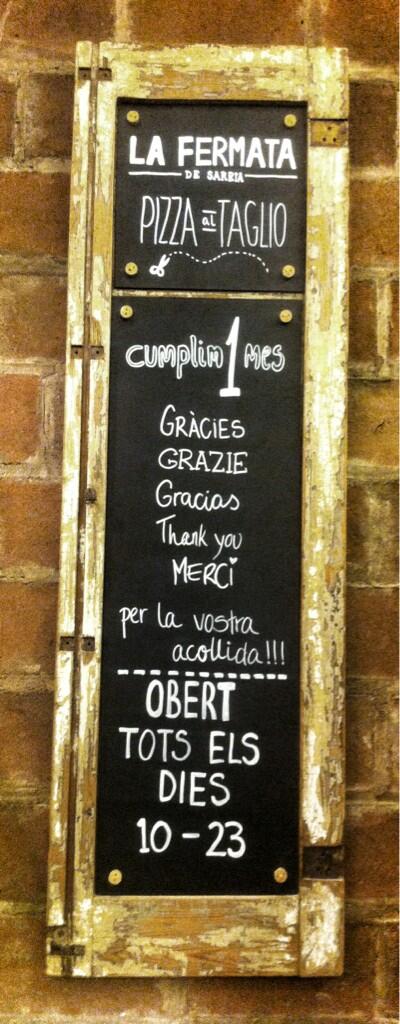 LA FERMATA
DE SARRIA
PIZZA al TAGLIO
cumplim 1 mes
GRÀCIES
GRAZIE
Gracias
Thank you
MERCi
per la vostra
acollida!!!
OBERT
TOTS ELS
DIES
10 - 23